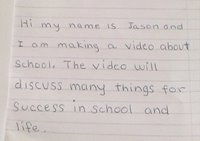 Hi my name is Jason and
I am making a video about
school. The video will
discuss many things for
success in school and
life.